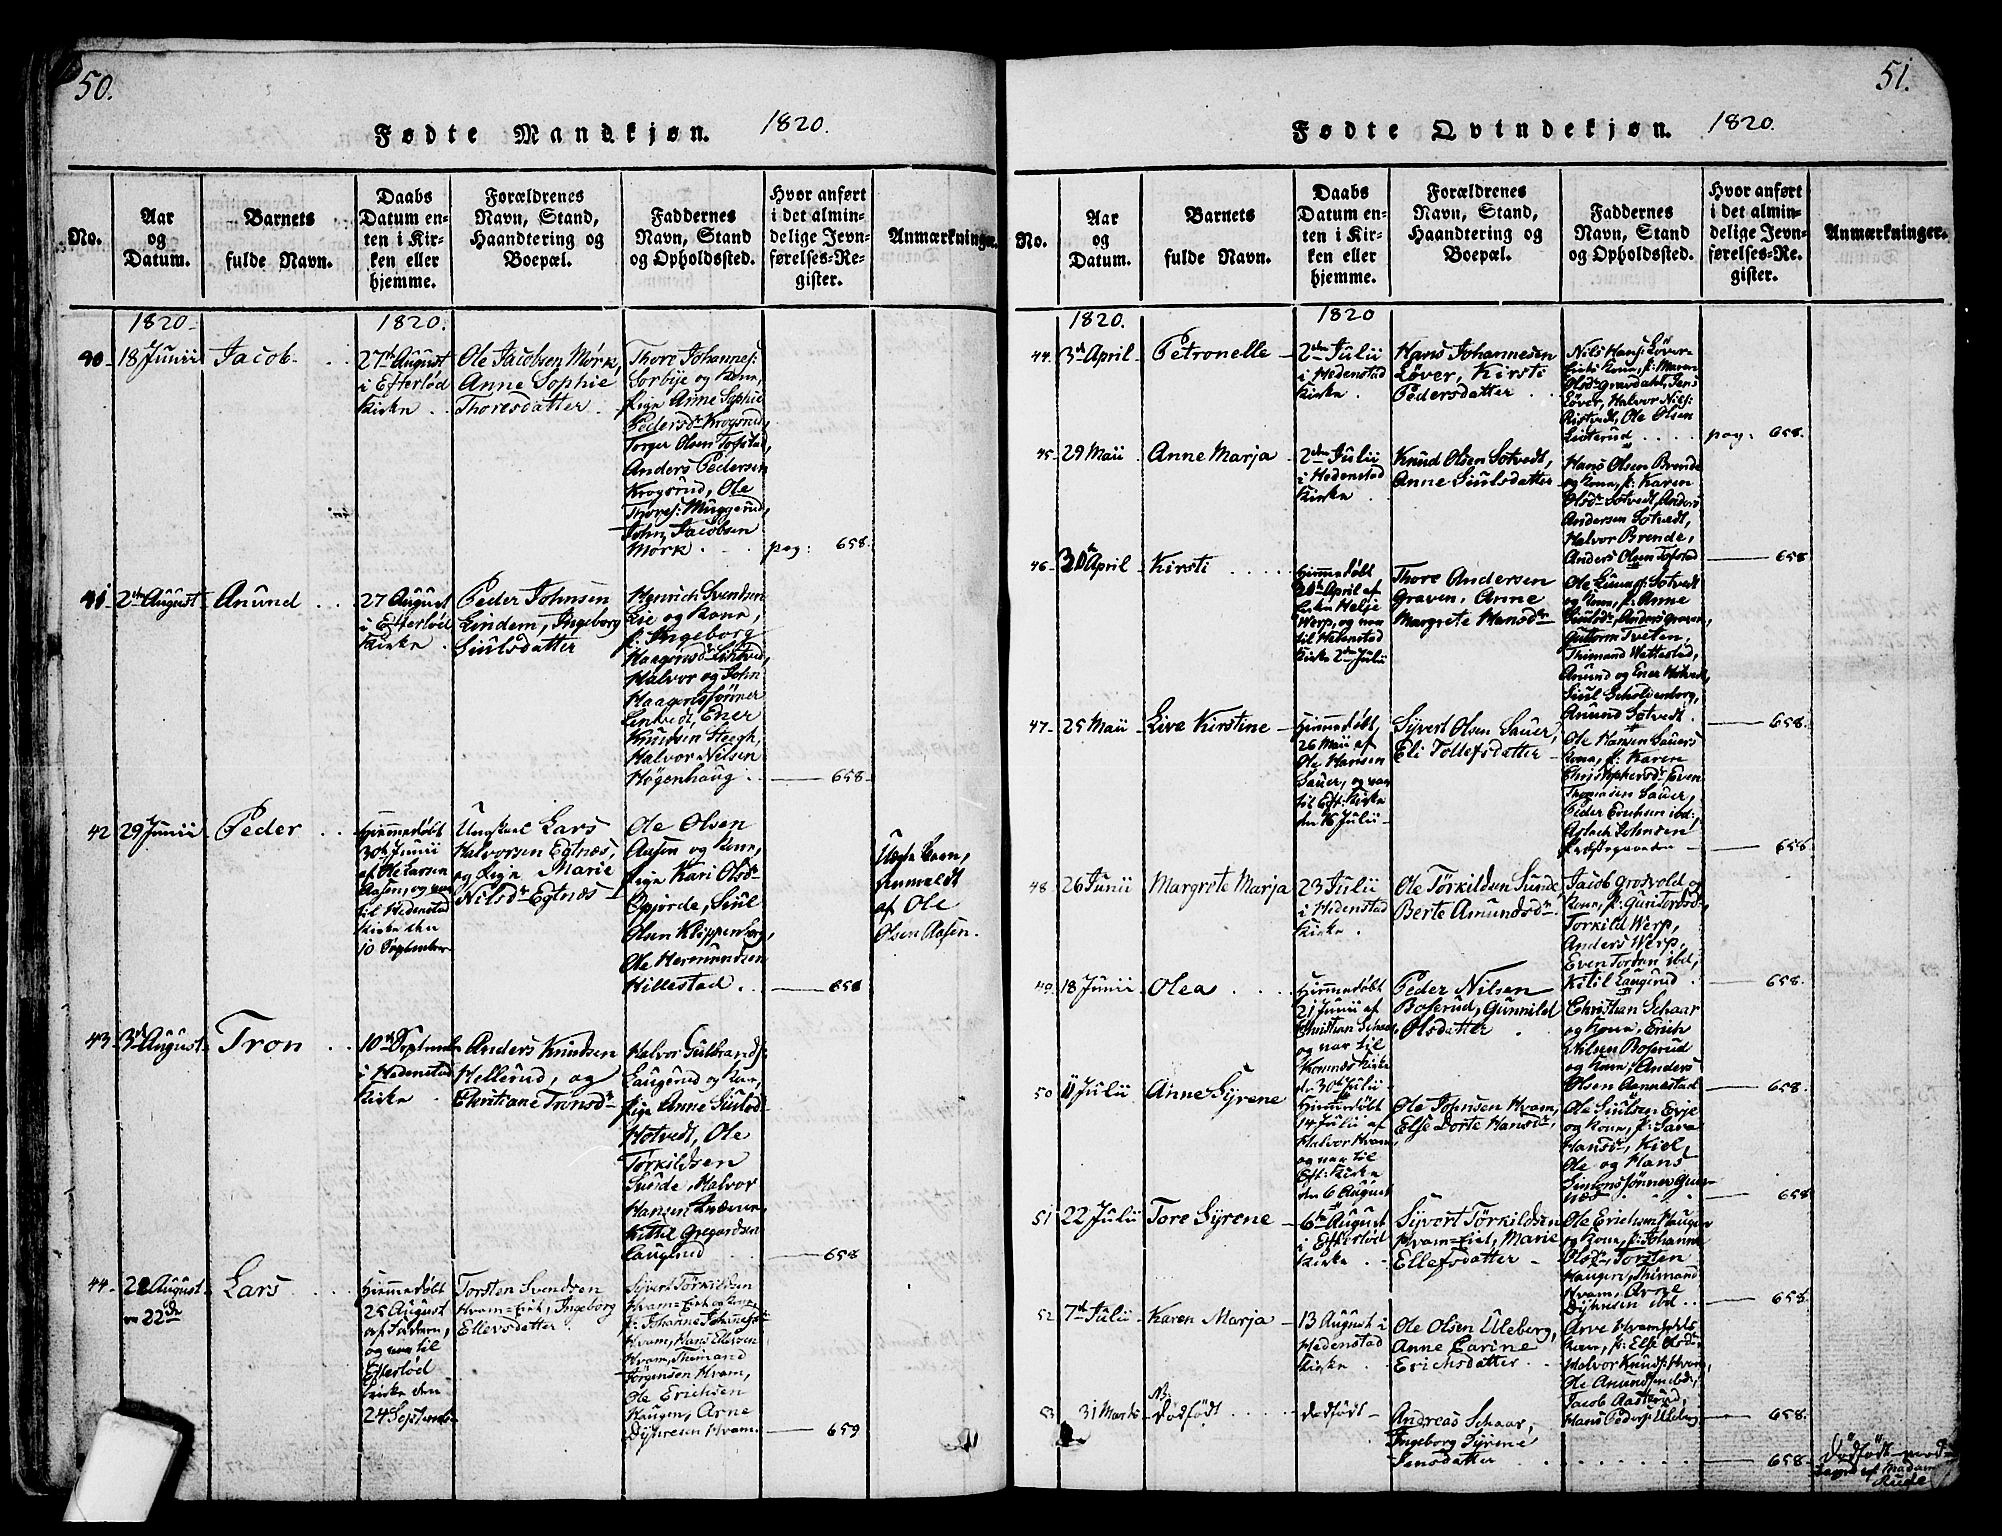 50.
Fødte Mandkjøn. 1820.
No.
Aar
og
Datum.
Barnets
fulde Navn.
Daabs
Datum en-
ten i Kir-
ken eller
hjemme.
Forældrenes
Navn, Stand,
Haandtering og
Boepæl.
Faddernes
Navn, Stand
og Opholdssted.
Hvor anført
i det almin-
delige Jevn-
førelses-Re-
gister.
Anmærkninger.
1820.
1820.
40
18 Junii
Jacob
27de August
i Efterlød
Kirke
Ole Jacobsen Mørk,
Anne Sophie
Thoresdatter.
Thore Johannes:
Sorbye og Kone,
Pige Anne Sophie
Pedersdr Krogsrud,
Torger Olsen Tofstad,
Anders Pedersen
Krogsrud, Ole
Thores: Muggerud,
John Jacobsen
Mørk
pag: 658.
41
2den August
Anund
27 August
i Efterlød
Kirke
Peder Johnsen
Lindem, Ingeborg
Siulsdatter
Henrich Svendsen
Lie og Kone,
p: Ingeborg
Haagensdr Lintved,
Halvor og John
Haagenssønner
Lintvedt, Ener
Knudsen Steegh,
Halvor Nilsen
Høgenhaug
658.
42
29 Junii
Peder
Hjemmedøbt
30te Junii
af Ole Larsen
Aasen, og var
til Hedenstad
Kirke den
10 September
Ungkarl Lars
Halvorsen Egtnæs,
og Pige Marie
Nilsdr Egtnæs
Ole Olsen
Aasen og Kone,
Pige Kari Olsdr
Gjørde, Siul
Olsen Klippenberg,
Ole Hermundsen
Hillestad
658
Uægte Barn,
Anmeldt
af Ole
Olsen Aasen.
43
3de August
Tron
10de Septembr
i Hedenstad
Kirke
Anders Knudsen
Hellerud, og
Christiane Tronsdr
Halvor Gulbrands:
Laugerud og Kone,
Pige Anne Siulsd
Hotvedt, Ole
Torkildsen
Sunde, Halvor
Hansen
Kittil Gregardsen
Laugerud
658
44
22de
Lars
Hjemmedøbt
25 August
og var til
Efterlød
Kirke den
24 Septembr
Torsten Svendsen
Hvam-Eiet, Ingeborg
Ellevsdatter
Syvert Torkildsen
Hvam, Hans Ellevsen
Hvam, Thimand
Jørgensen Hvam,
Ole Erichsen
Haugen, Arne
Dyhresen Hvam
659
51.
Fødte Qvindekjøn. 1820.
No.
Aar
og
Datum.
Barnets
fulde Navn.
Daabs
Datum en-
ten i Kir-
ken eller
hjemme.
Forældrenes
Navn, Stand,
Haandtering og
Boepæl.
Faddernes
Navn, Stand
og Opholdssted.
Hvor anført
i det almin-
delige Jevn-
førelses-Re-
gister.
Anmærkninger.
1820.
1820
44
3de April
Petronelle
2den Julii
i Hedenstad
Kirke
Hans Johannesen
Løver, Kirsti
Pedersdatter
Nils Hans: Løver-
Eiets Kone, p: Maren
Olsdr Gravdahl, Jens
Løver, Halvor Nils:
Ristvedt, Ole Olsen
Listerud
pag: 658.
45
29 Maii
Anne Marja
2den Julii
i Hedenstad
Kirke
Knud Olsen Sotvedt,
Anne Siulsdatter
Hans Olsen Brende
og Kone, p: Karen
Olsdr Sotvedt, Anders
Andersen Sotvedt,
Halvor Brende,
Anders Olsen Tofstad
658
46
30te April
Kirsti
Hjemmedøbt
30te April af
Werp, og var
til Hedenstad
Kirke 2den Julii
Thore Andersen
Graven, Anne
Margrete Hansdr
og Kone, p: Anne
Siulsdr, Anders Graven,
Guttorm Tveten,
Thimand Wettestad,
Anund og Ener Hotved,
Siul Scholdenborg,
Anund Sotvedt
658.
47
25 Maii
Live Kirstine
Hjemmedøbt
26 Maii af
Ole Hansen
Sauer, og var
til Eft: Kirke
den 16 Julii
Syvert Olsen Sauer,
Eli Tollefsdatter
Ole Hansen Sauers
Kone, p: Karen
Christophersdr, Even
Thomasen Sauer,
Peder Erichsen ibd:
Aslach Johnsen
Præstegaarden
658
48
26 Junii
Margrete Marja
23 Julii
i Hedenstad
Kirke
Ole Torkildsen Sunde,
Berte Amundsdr
Jacob Grosvold og
Kone, p: Guri Torsdr
Torkild Werp,
Anders Werp,
Even Torsen ibd,
Kitil Laugerud
658.
49
18 Junii
Olea
Hjemmedøbt
21 Junii af
Christian Schaar,
og var til
Komnes Kirke
d. 30te Julii
Peder Nilsen
Boserud, Gunnild
Olsdatter
Christian Schaar
og Kone, Erich
Nilsen Boserud
og Kone, Anders
Olsen Aannestad
658.
50
11 Julii
Anne Syrene
Hjemmedøbt
14 Julii af
Halvor Hvam,
og var til
Eft: Kirke
den 6 August
Ole Johnsen Hvam,
Else Dorte Hansdr
Ole Siulsen Evje
og Kone, p: Sara
Hansdr, Kiel,
Ole og Hans
Simonssønner Gun-
næs
658
51
22 Julii
Tore Syrene
6te August
i Efterlød
Kirke
Syvert Torkildsen
Hvam-Eiet, Marie
Ellefsdatter
Ole Erichsen Haugen
og Kone, p: Johanne
Olsdr, Torsten
Haugen, Thimand
Hvam, Arne
Dyhresen ibd
658.
52
7de Julii
Karen Marja
13 August i
Hedenstad
Kirke
Ole Olsen Uleberg,
Anne Carine
Erichsdatter
Kone, p: Else Olsdr
Halvor Knuds: Hvam,
Ole Anundsen ibd:
Jacob Aasterud,
Hans Peders: Uleberg
658.
53
31 Marts
NB:
Dødfødt
Dødfødt
Andreas Schaar,
Ingeborg Syrene
Jensdatter
658.
Dødfødt
Madam
Rude